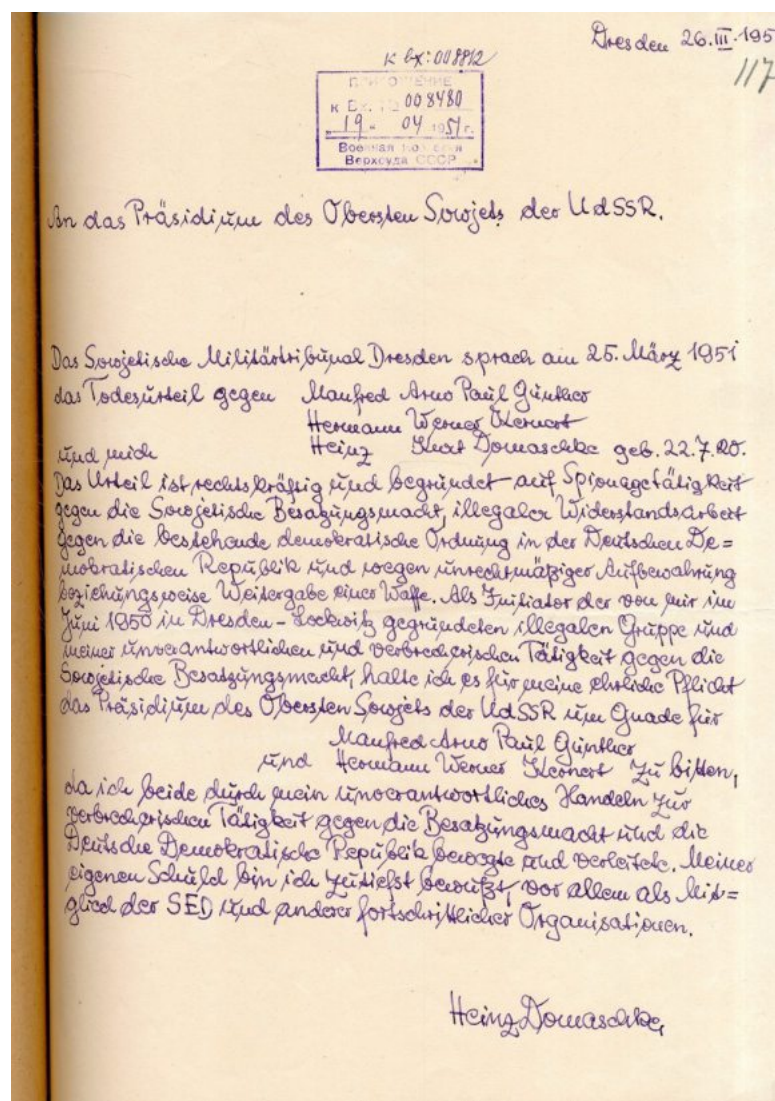 Dresden 26.III.195
117
к вх: 008812
ПРИЛОЖЕНИЕ
к Вх. 008480
"19" 04 1951 г.
Военная Коллегия
Верхсуда СССР
An das Präsidium des Obersten Sowjets der UdSSR.
Das Sowjetische Militärtribunal Dresden sprach am 25. März 1951
das Todesurteil gegen Manfred Arno Paul Günther
Hermann Werner
und mich Heinz Kurt Domaschke geb. 22.7.20.
Das Urteil ist rechtskräftig und begründet auf Spionagetätigkeit
gegen die Sowjetische Besatzungsmacht, illegaler Widerstandsarbeit
gegen die bestehende demokratische Ordnung in der Deutschen De=
mokratischen Republik und wegen unrechtmäßiger Aufbewahrung
beziehungsweise Weitergabe einer Waffe. Als Initiator der von mir im
Juni 1950 in Dresden-Lockwitz gegründeten illegalen Gruppe und
meiner unverantwortlichen und verbrecherischen Tätigkeit gegen die
Sowjetische Besatzungsmacht, halte ich es für meine ehrliche Pflicht
das Präsidium des Obersten Sowjets der UdSSR um Gnade für
Manfred Arno Paul Günther
und Hermann Werner zu bitten,
da ich beide durch mein unverantwortliches Handeln zur
verbrecherischen Tätigkeit gegen die Besatzungsmacht und die
Deutsche Demokratische Republik bewegte und verleitete. Meiner
eigenen Schuld bin ich zutiefst bewußt, vor allem als Mit=
glied der SED und anderer fortschrittlicher Organisationen.
Heinz Domaschke,